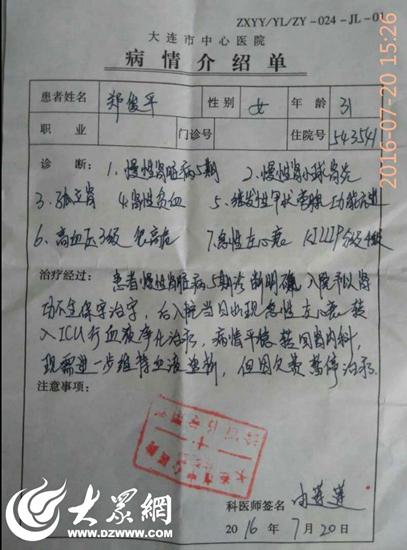 ZXYY/YL/ZY-024-JL-01
大连市中心医院
病情介绍单
患者姓名 郑俊平 性别 女 年龄 31
职业 门诊号 住院号 543541
诊断: 1.慢性肾脏病5期 2.慢性肾小球肾炎
3.孤立肾 4.肾性贫血 5.继发性甲状旁腺功能亢进
6.高血压3级 很高危 7.急性左心衰 KILLIP分级4级
治疗经过: 患者慢性肾脏病5期诊断明确,入院予以肾
功不全保守治疗,后入院当日出现急性左心衰 转
入ICU行血液净化治疗,病情平稳 转回肾内科,
现需进一步维持血液透析,但因欠费 暂停治疗.
注意事项:
科医师签名
2016年7月20日
2016-07-20 15:26
大众網
www.dzwww.com